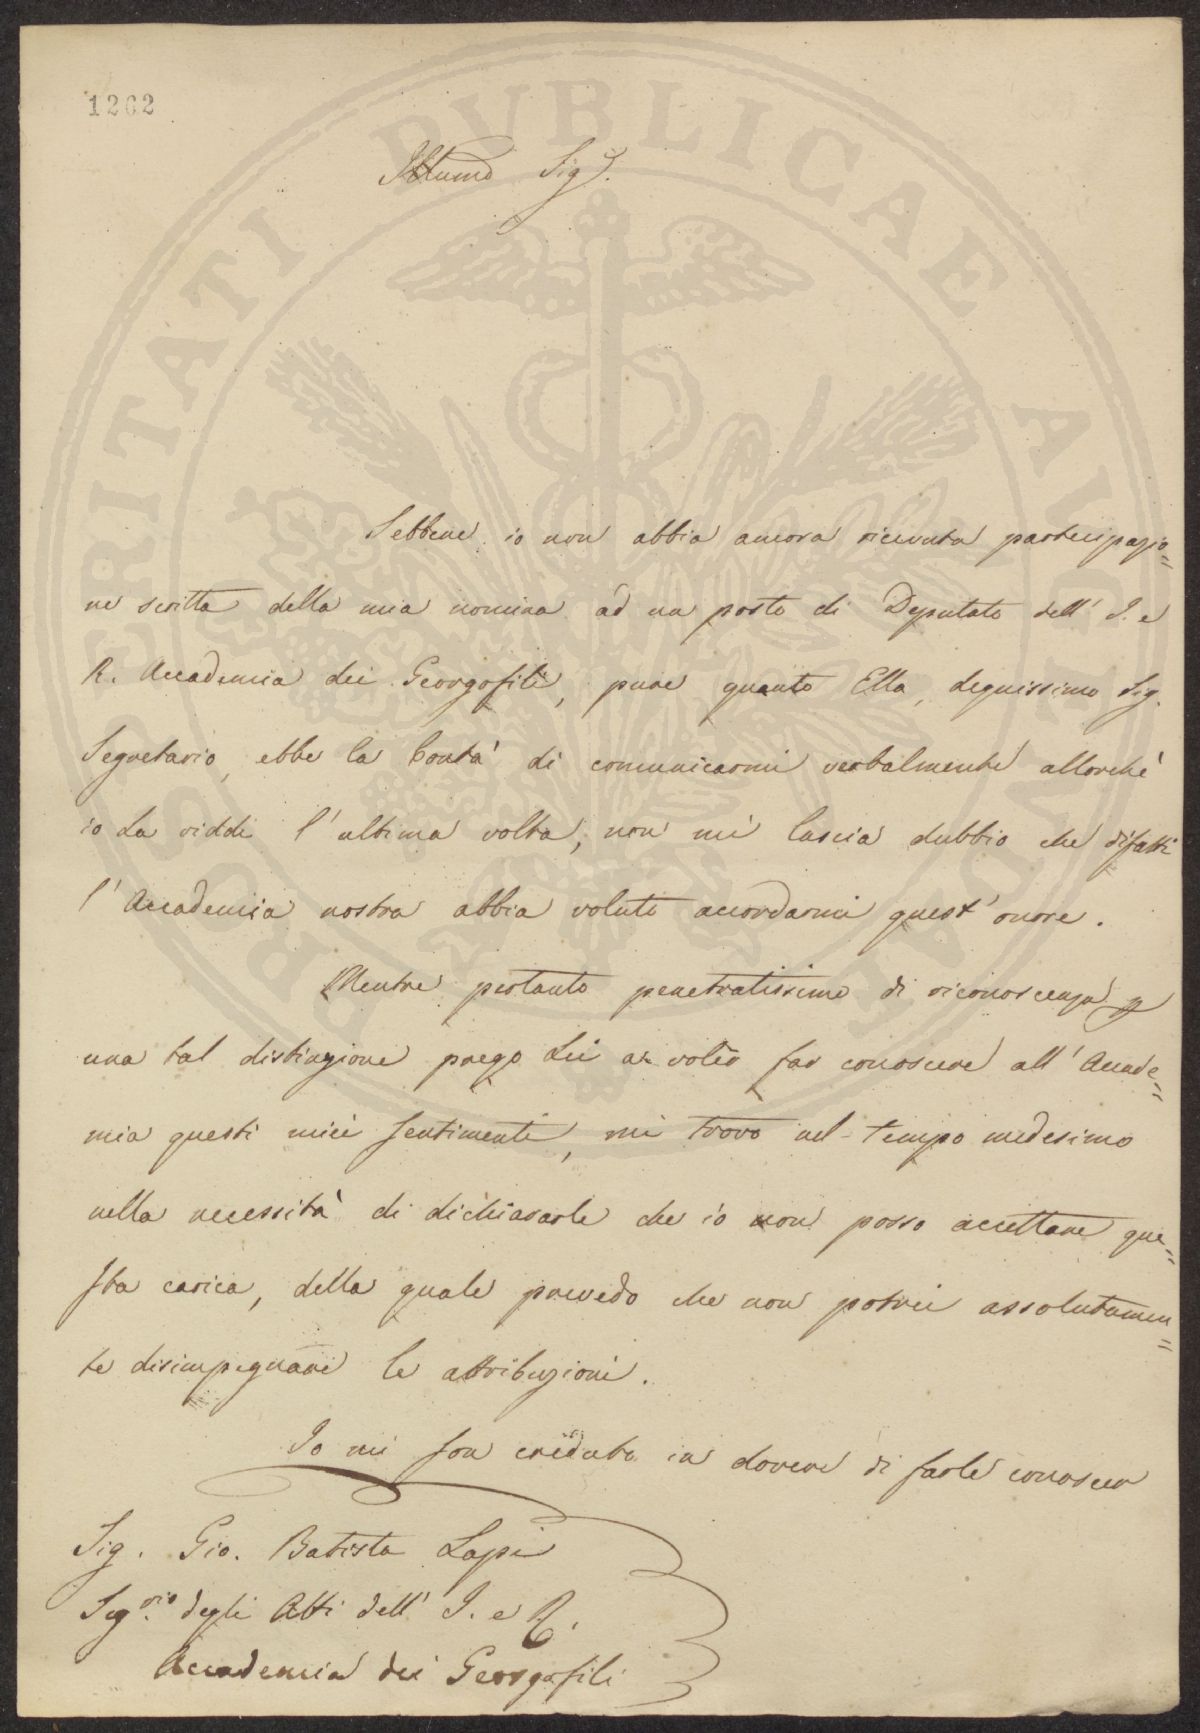 1262
PROSPERITATI PVBLICAE AVGENDAE
Illumo Sigr.
Sebbene io non abbia ancora ricevuta partecipazio=
ne scritta della mia nomina ad un posto di Deputato dell' I. e
R. Accademia dei Georgofili, pure quanto Ella, degnissimo Sig.
Segretario, ebbe la bontà di comunicarmi verbalmente allorchè
io La viddi l'ultima volta, non mi lascia dubbio che difatti
l'Accademia nostra abbia voluto accordarmi quest'onore.
Mentre pertanto penetratissimo di riconoscenza p
una tal distinzione prego Lei a voler far conoscere all'Accade=
mia questi miei sentimenti, mi trovo nel tempo medesimo
nella necessità di dichiararle che io non posso accettare que=
sta carica, della quale prevedo che non potrei assolutamen=
te disimpegnare le attribuzioni.
Io mi son creduto in dovere di farle conoscer
Sig. Gio. Batista Lapi
Segrio. degli Atti dell' I. e R.
Accademia dei Georgofili